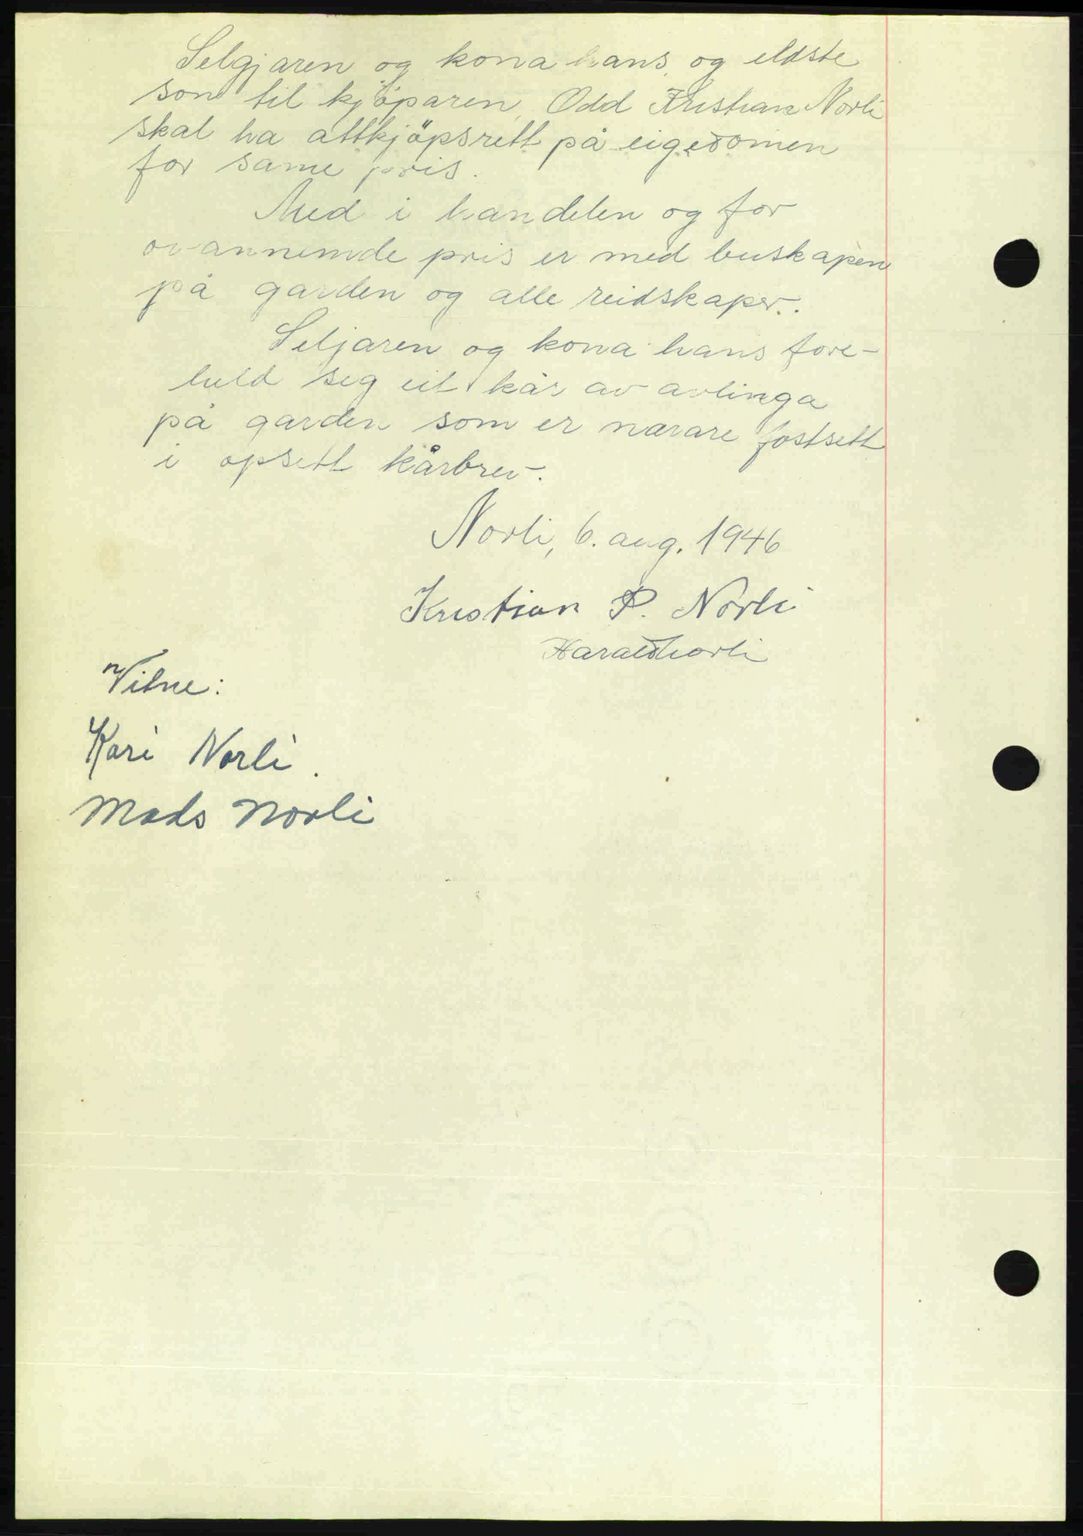 Selgjaren og kona hans og eldste
son til kjöparen, Odd Kristian Norli
skal ha attkjöpsrett på eigedomen
for same pris.
Med i handelen og for
ovannemde pris er med buskapen
på garden og alle reidskaper.
Seljaren og kona hans fore-
held seg eit kår av avlinga
på garden som er nærare fastsett
i opsett kårbrev.
Norli, 6. aug. 1946
Kristian P. Norli
Harald Norli
Vitne:
Kari Norli.
Mads Norli